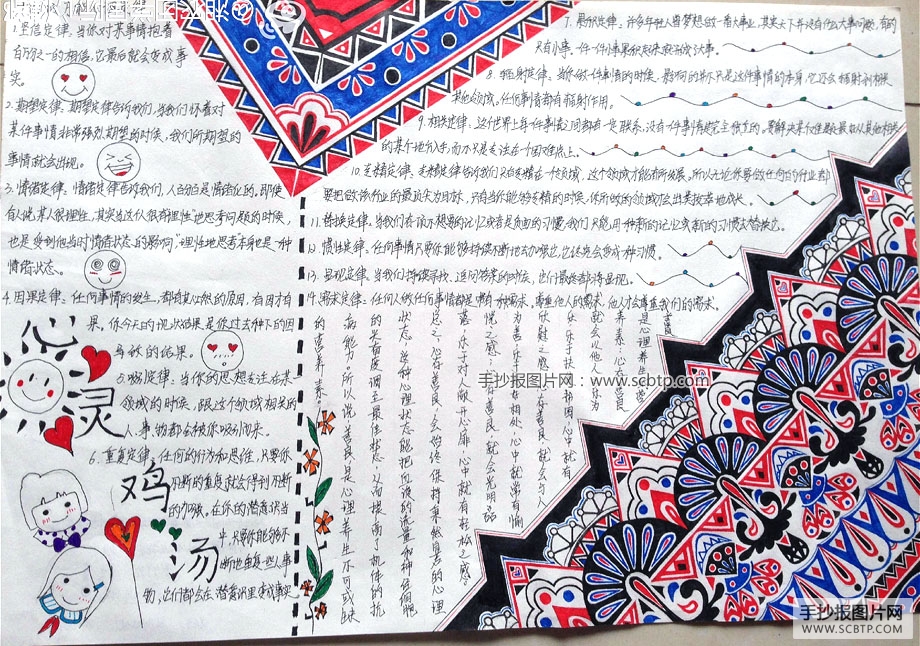 1. 坚信定律：当你对某事情抱着
百分之一的相信，它最后就会变成事
实。
2. 期望定律：期望定律告诉我们，当我们怀着对
某件事情非常强烈期望的时候，我们所期望的
事情就会出现。
3. 情绪定律：情绪定律告诉我们，人百分百是情绪化的。即使
有人说某人很理性，其实当这个人很有理性地思考问题的时候，
也是受到他当时情绪状态的影响，"理性地思考"本身也是一种
情绪状态。
4. 因果定律：任何事情的发生，都有其必然的原因。有因才有
果。你今天的现状结果是你过去种下的因
导致的结果。
5. 吸引定律：当你的思想专注在某
一领域的时候，跟这个领域相关的
人、事、物都会被你吸引而来。
6. 重复定律：任何的行为和思维，只要你
不断的重复就会得到不断
的加强。在你的潜意识当
中，只要你能够不
断地重复一些人、事、
物，它们都会在潜意识里变成事实
心灵
鸡汤
7. 累积定律：许多年轻人曾梦想做一番大事业，其实天下并没有什么大事可做，有的
只有小事。一件一件小事累积起来就形成了大事。
8. 辐射定律：当你做一件事情的时候，影响的并不只是这件事情的本身，它还会辐射到相关
其他领域。任何事情都有辐射作用。
9. 相关定律：这个世界上每一件事情之间都有一定联系，没有一件事情是完全独立的。要解决某个难题最好从其他相关
的某个地方入手，而不只是专注在一个困难点上。
10. 专精定律：专精定律告诉我们只有专精在一个领域，这个领域才能有所发展。所以无论你要做任何的行业都
要把做该行业的最顶尖为目标，只有当你能够专精的时候，你所做的领域才会出类拔萃地成长。
11. 替换定律：当我们有一项不想要的记忆或者是负面的习惯，我们只能用一种新的记忆或新的习惯去替换它。
12. 惯性定律：任何事情只要你能够持续不断地去加强它，它终究会变成一种习惯。
13. 显现定律：当我们持续寻找、追问答案的时候，它们最终都将显现。
14. 需求定律：任何人做任何事情都是带有一种需求。尊重他人的需求，他人才会尊重我们的需求。
善良
是心理养生的营
养素。心存善良，
就会以他人之乐为
乐，乐于扶贫帮困，心中就有
欣慰之感；心存善良，就会与人
为善，乐于友好相处，心中就常有愉
悦之感；心存善良，就会光明磊
落，乐于对人敞开心扉，心中就有轻松之感。
总之，心存善良，人会始终保持泰然自若的心理
状态，这种心理状态能把血液的流量和神经细胞
的兴奋度调至最佳状态，从而提高了机体的抗
病能力。所以说，善良是心理养生不可或缺
的营养素。
手抄报图片网：www.scbtp.com
手抄报图片网
WWW.SCBTP.COM